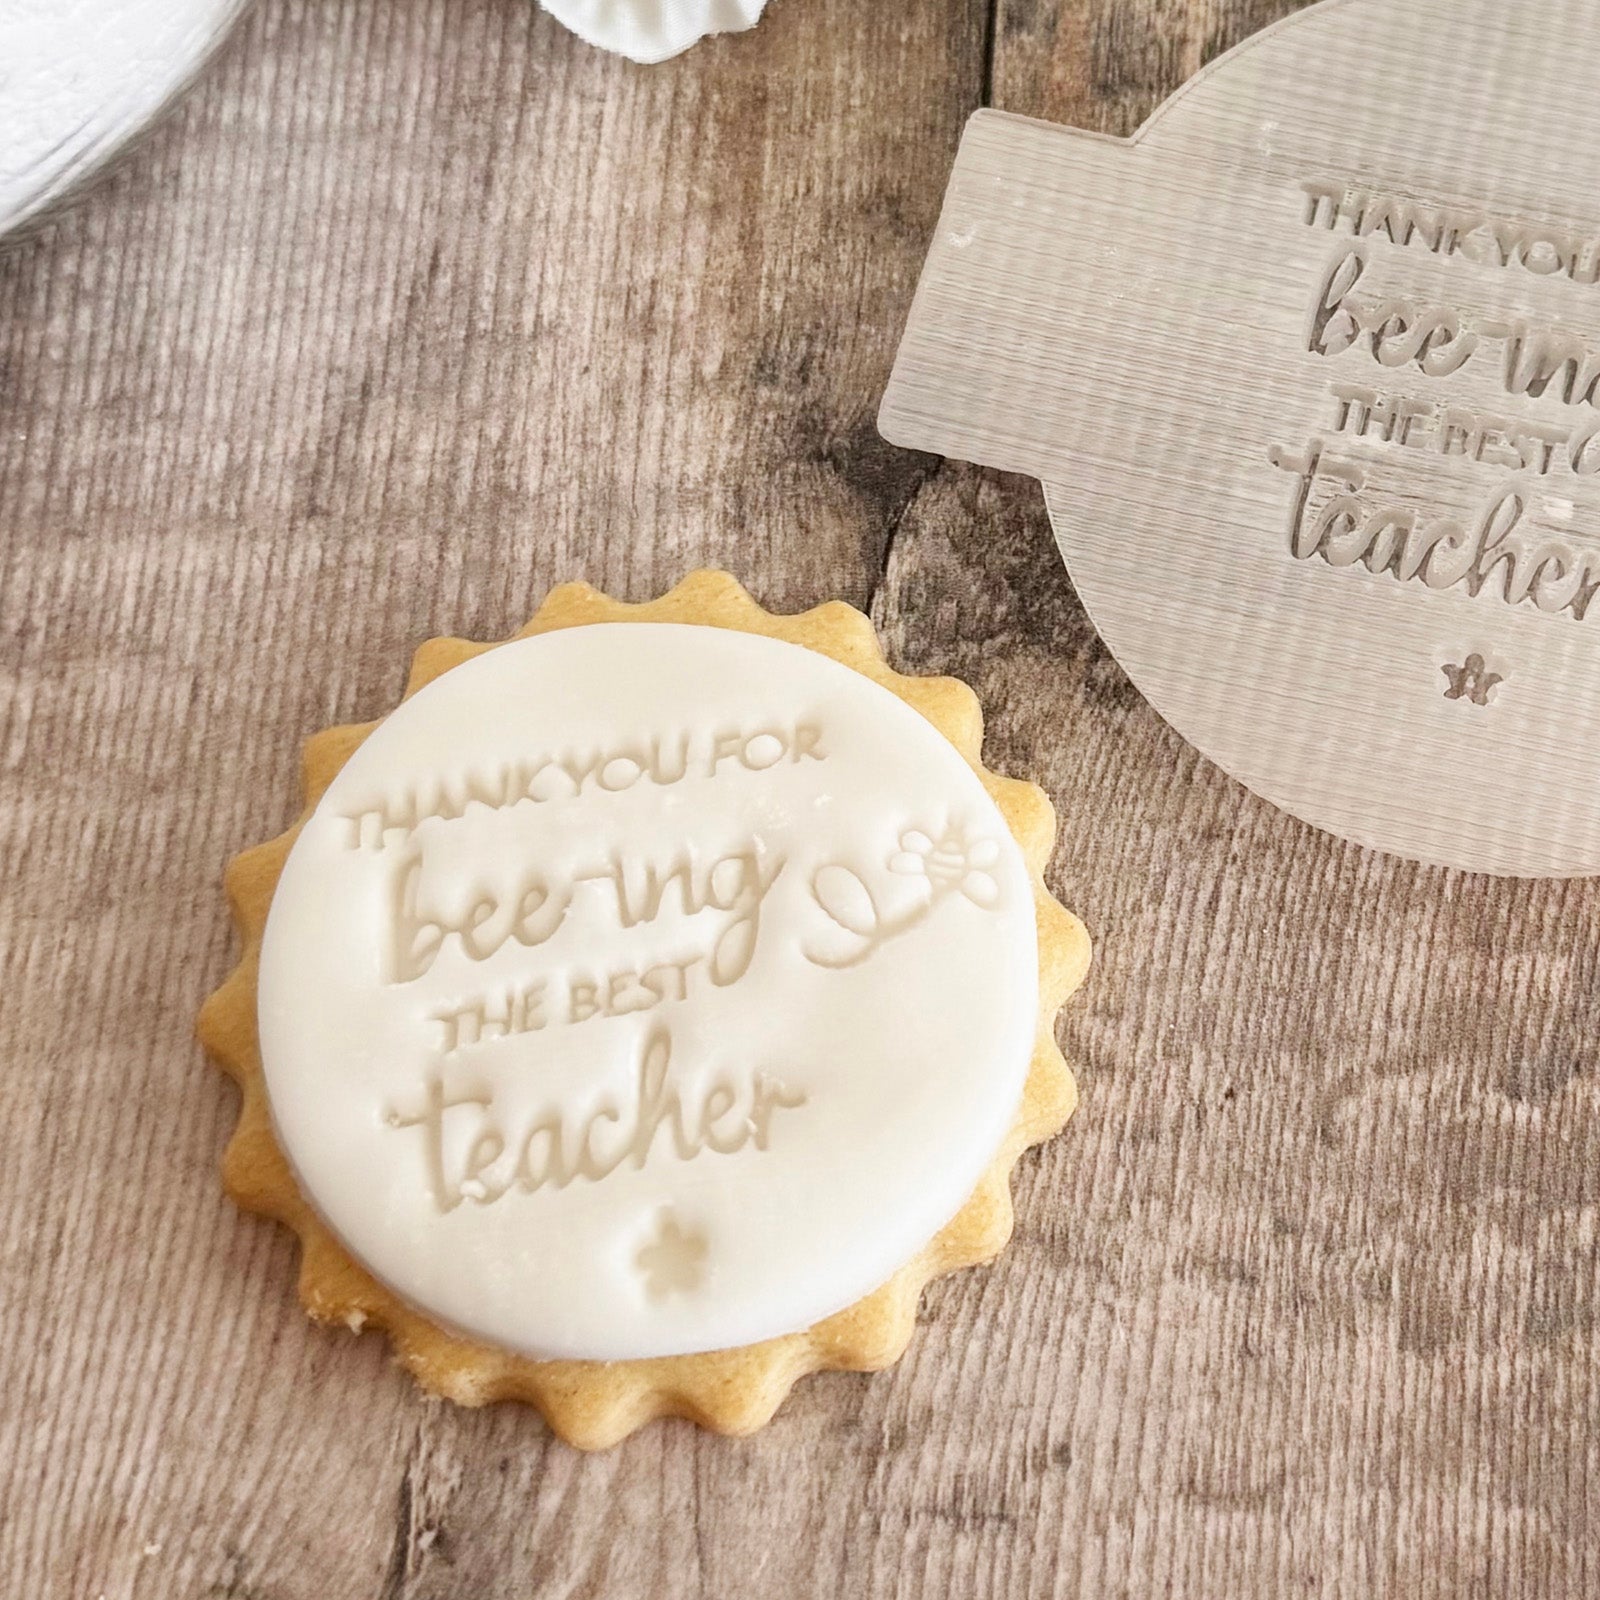 THANK YOU FOR
bee-ing
THE BEST
teacher
THANK YOU
bee-ing
THE BEST
teacher